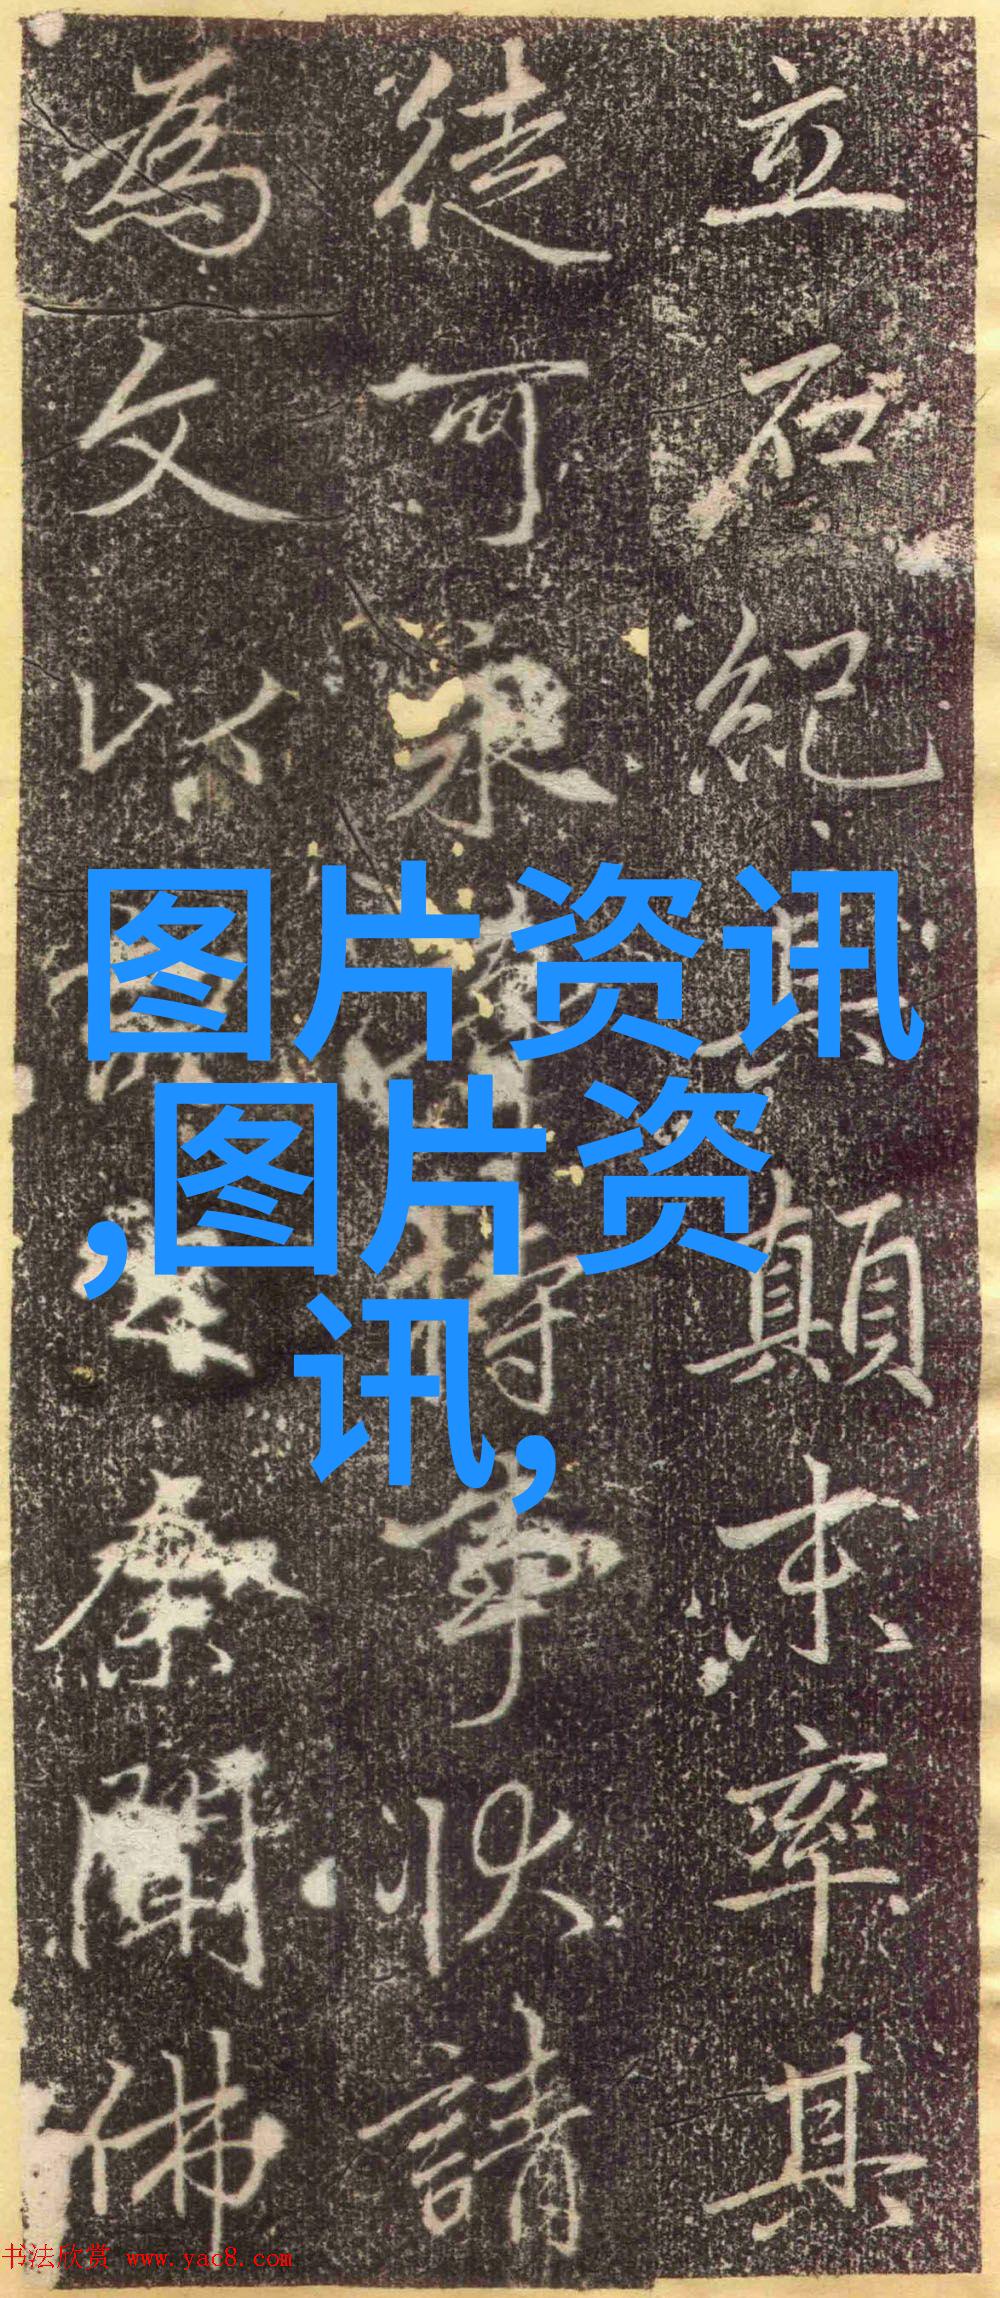 立石紀其顛末率其
徒可永持事狀請
為文以余聞佛
图片资讯
,图片资
讯,
书法欣赏 www.yac8.com